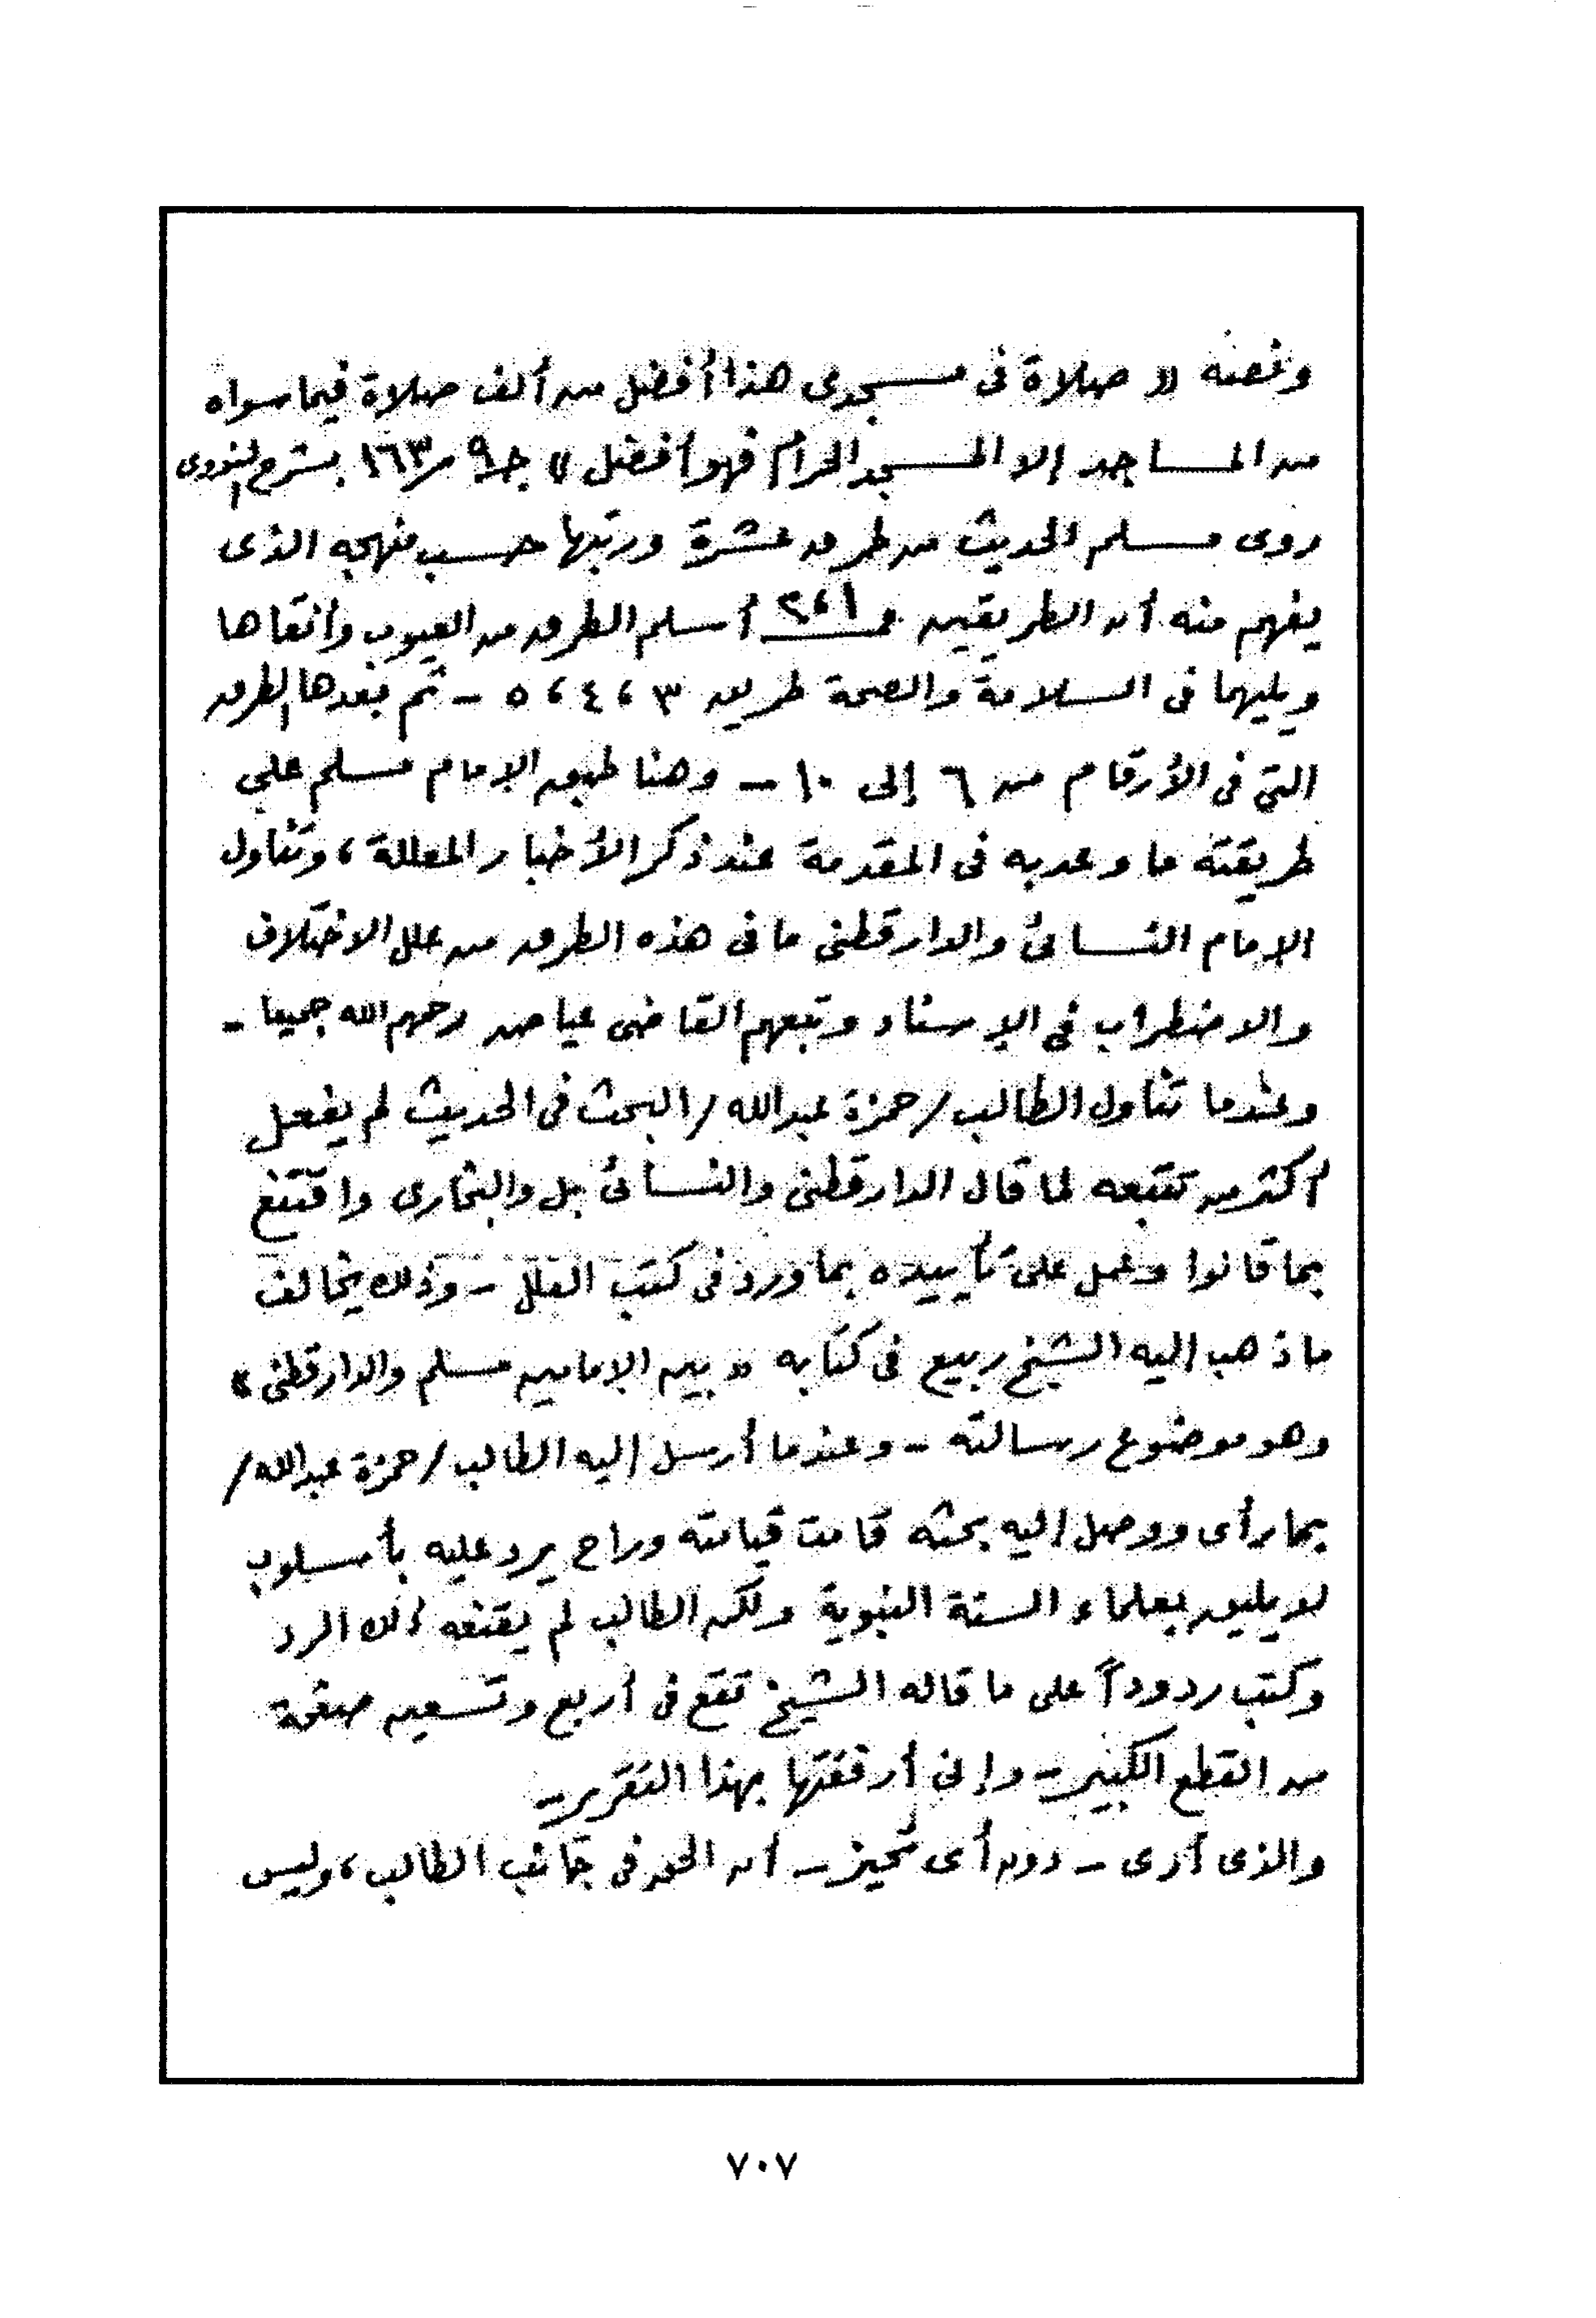 ونصه « صلاة فى مسجدى هذا أفضل من ألف صلاة فيما سواه
من المساجد إلا المسجد الحرام فهو أفضل » جـ ٩ ص ١٦٣ بشرح النووى
روى مسلم الحديث من طرق عشرة ورتبها حسب منهجه الذى
يفهم منه أن الطريقين ٢،١ أسلم الطرق من العيوب وأنقاها
ويليهما فى السلامة والصحة طريق ٣ ، ٤ ، ٥ - ثم بعدها الطرق
التى فى الأرقام من ٦ إلى ١٠ - وهنا طبق الإمام مسلم على
طريقته ما وعد به فى المقدمة عند ذكر الأخبار المعللة ، وتناول
الإمام النسائى والدارقطنى ما فى هذه الطرق من علل الاختلاف
والاضطراب فى الإسناد وتبعهم القاضى عياض رحمهم الله جميعا -
وعندما تناول الطالب / حمزة عبدالله / البحث فى الحديث لم يفعل
أكثر من تتبعه لما قال الدارقطنى والنسائى بل والبخارى واقتنع
بما قالوا وعمل على تأييده بما ورد فى كتب العلل - وذلك يخالف
ما ذهب إليه الشيخ ربيع فى كتابه « بين الإمامين مسلم والدارقطنى »
وهو موضوع رسالته - وعندما أرسل إليه الطالب / حمزة عبدالله /
بما رأى ووصل إليه بحثه قامت قيامته وراح يرد عليه بأسلوب
لا يليق بعلماء السنة النبوية ولكن الطالب لم يقنعه ذلك الرد
وكتب ردوداً على ما قاله الشيخ تقع فى أربع وتسعين صفحة
من القطع الكبير - وإنى أرفقتها بهذا التقرير -
والذى أرى - دون أى تحيز - أن الحق فى جانب الطالب ، وليس
٧٠٧